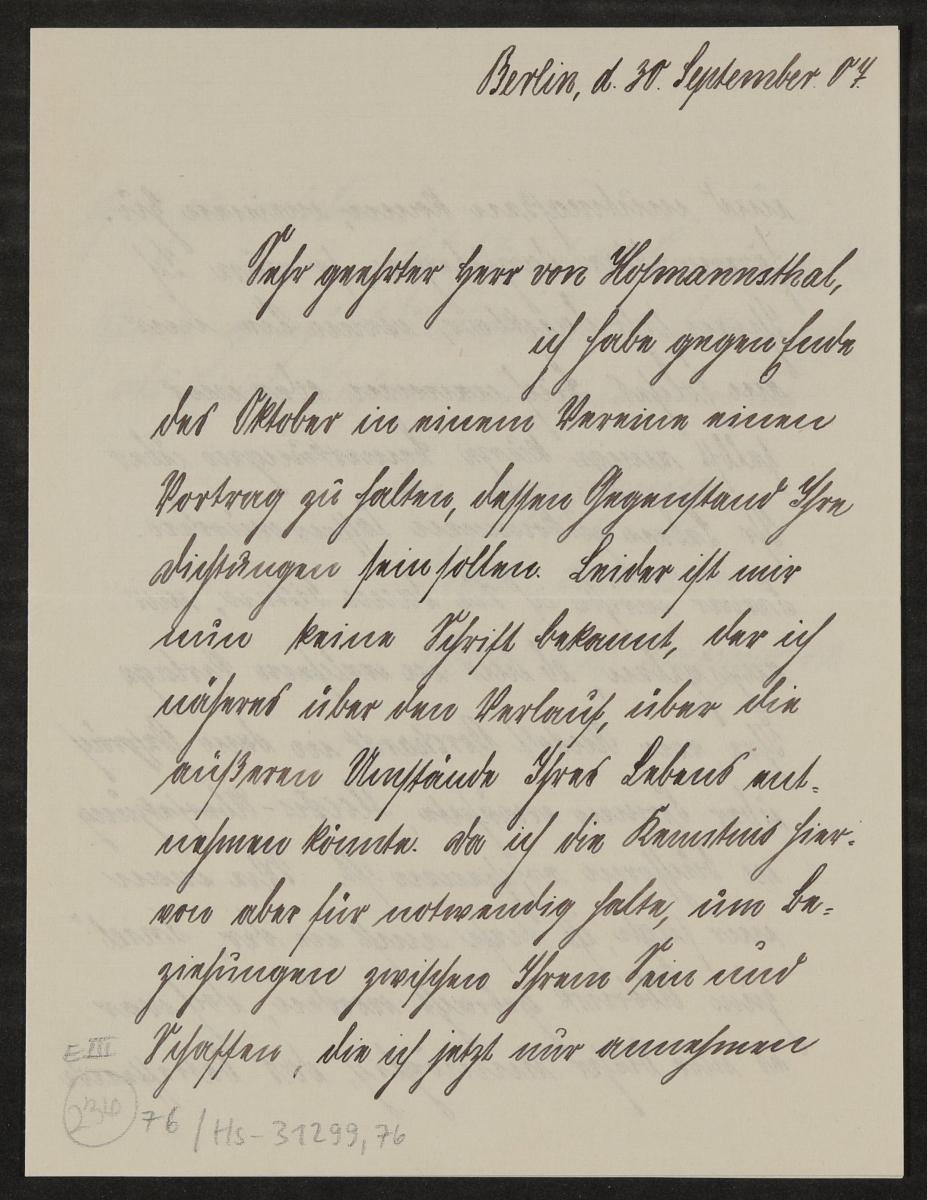 Berlin, d. 30. September. 07.
Sehr geehrter Herr von Hofmannsthal,
ich habe gegen Ende
des Oktober in einem Vereine einen
Vortrag zu halten, dessen Gegenstand Ihre
Dichtungen sein sollen. Leider ist mir
nun keine Schrift bekannt, der ich
näheres über den Verlauf, über die
äußeren Umstände Ihres Lebens ent-
nehmen könnte. Da ich die Kenntnis hier-
von aber für notwendig halte, um Be-
ziehungen zwischen Ihrem Sein und
Schaffen, die ich jetzt nur annehmen
E III
234
76 / Hs-31299,76